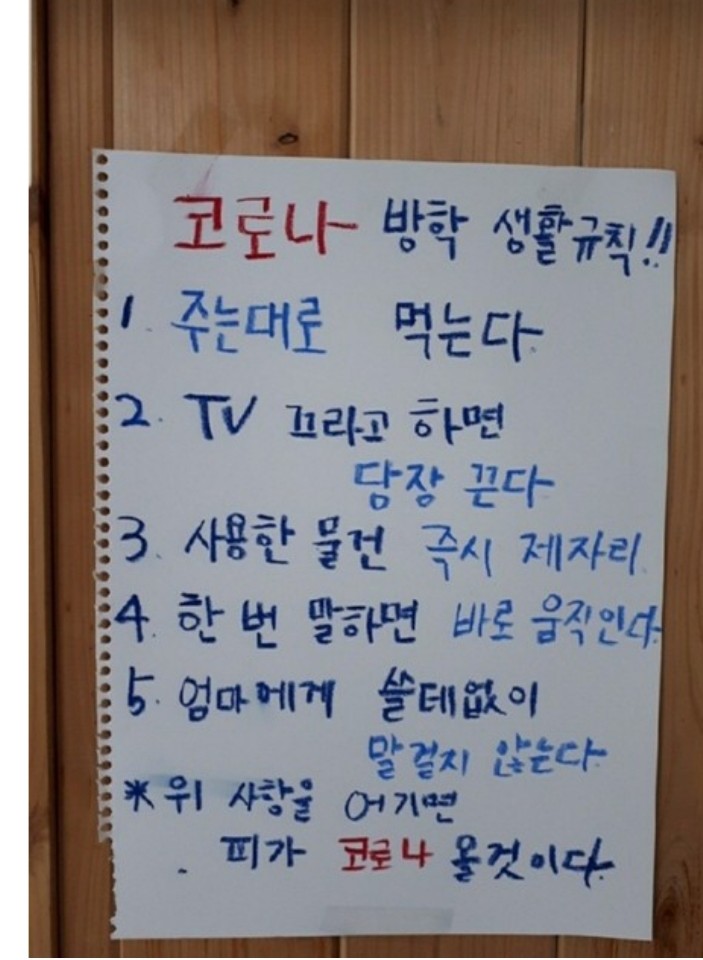 코로나 방학 생활규칙!!
1. 주는대로 먹는다.
2. TV 끄라고 하면
당장 끈다
3. 사용한 물건 즉시 제자리.
4. 한 번 말하면 바로 움직인다.
5. 엄마에게 쓸데없이
말 걸지 않는다.
* 위 사항을 어기면
. 피가 코로나 올것이다.